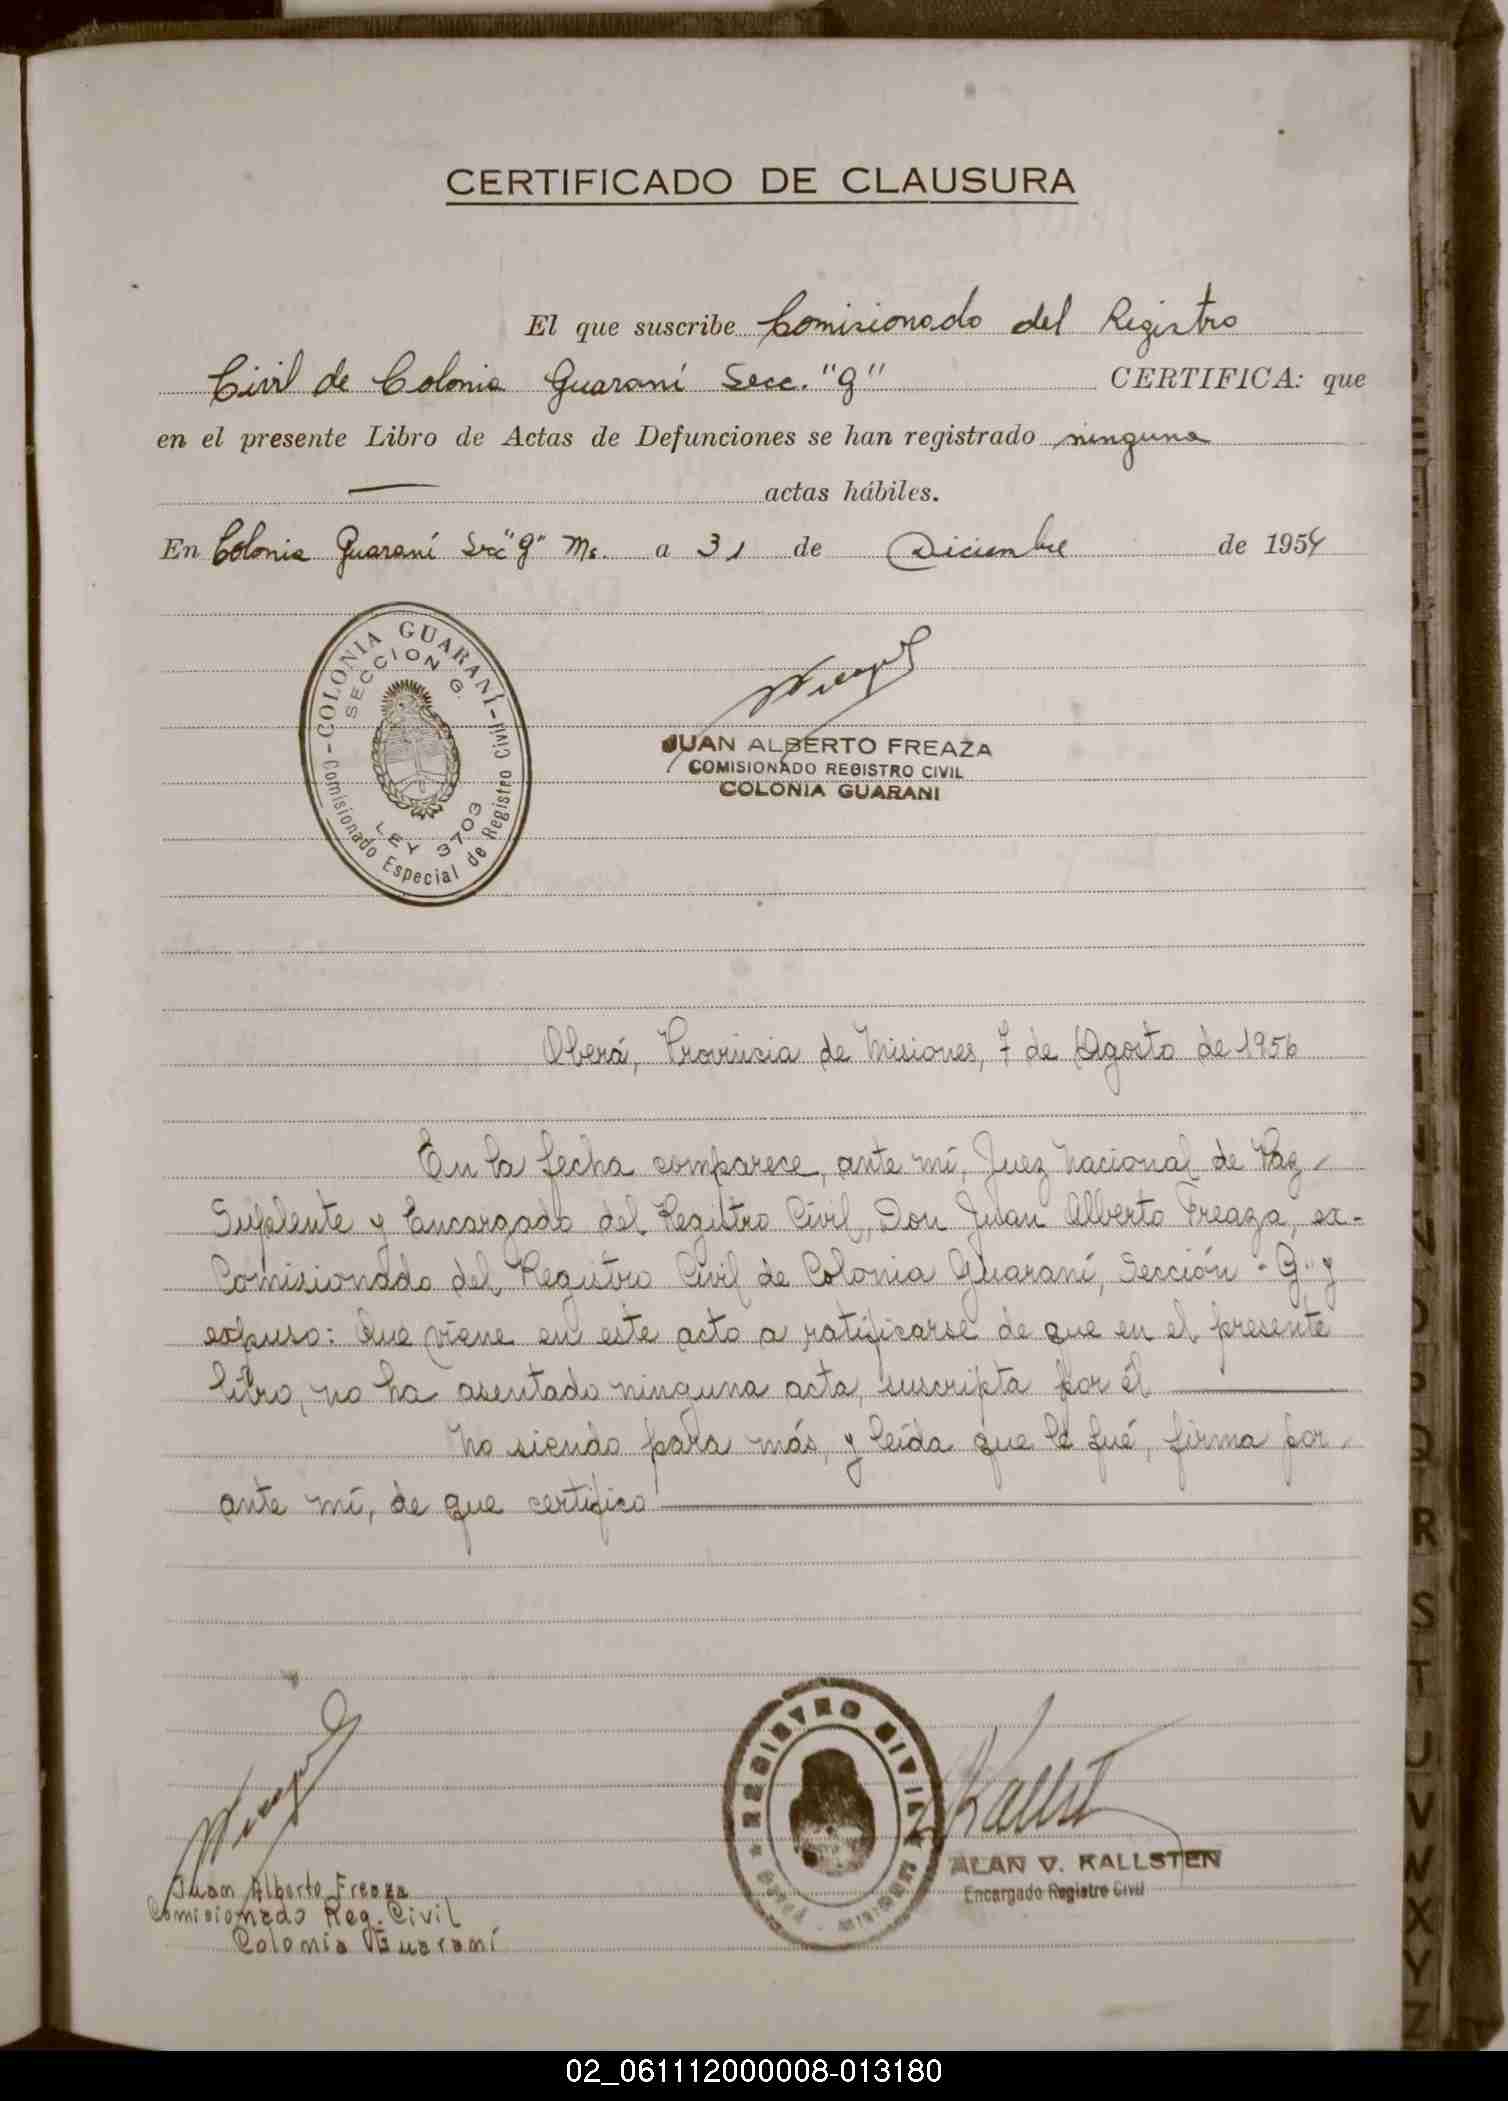 CERTIFICADO DE CLAUSURA
El que suscribe Comisionado del Registro
Civil de Colonia Guaraní Secc. "G" CERTIFICA: que
en el presente Libro de Actas de Defunciones se han registrado ninguna
actas hábiles.
En Colonia Guaraní Secc "G" Ms. a 31 de Diciembre de 1954
COLONIA GUARANÍ - Comisionado Especial de Registro Civil -
SECCION G.
LEY 3703
JUAN ALBERTO FREAZA
COMISIONADO REGISTRO CIVIL
COLONIA GUARANI
Oberá, Provincia de Misiones, 7 de Agosto de 1956
En la fecha comparece, ante mí, Juez Nacional de Paz
Suplente y Encargado del Registro Civil, Don Juan Alberto Freaza, ex-
Comisionado del Registro Civil de Colonia Guaraní, Sección "G" y
expuso: Que viene en este acto a ratificarse de que en el presente
libro, no ha asentado ninguna acta, suscripta por él
No siendo para más, y leída que le fué, firma por
ante mí, de que certifico
REGISTRO CIVIL
OBERÁ - MISIONES
Kallst
ALAN V. KALLSTEN
Encargado Registro Civil
Juan Alberto Freaza
Comisionado Reg. Civil
Colonia Guaraní
R
S
T
U
V
W
X
Y
Z
02_061112000008-013180